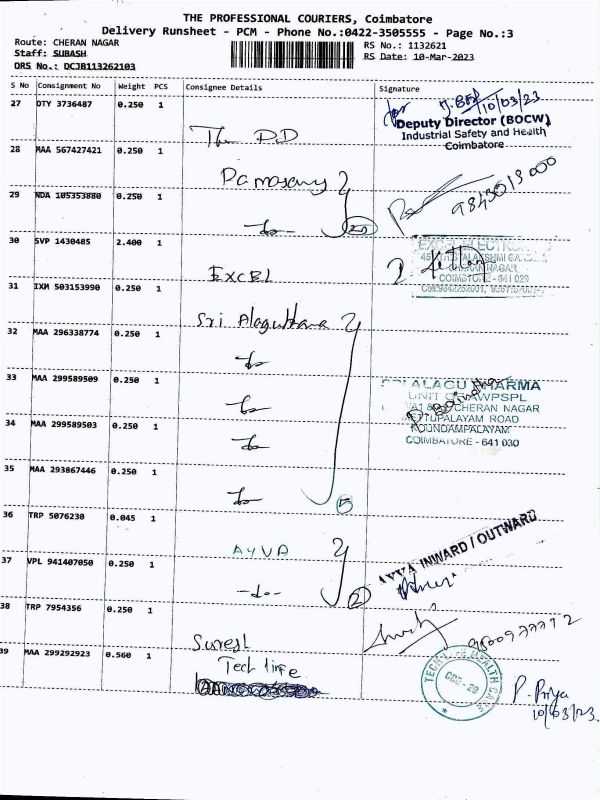 THE PROFESSIONAL COURIERS, Coimbatore
Delivery Runsheet - PCM - Phone No.:0422-3505555 - Page No.:3
Route: CHERAN NAGAR
Staff: SUBASH
DRS No.: DCJB113262103
RS No.: 1132621
RS Date: 10-Mar-2023
S No Consignment No Weight PCS Consignee Details Signature
27 OTY 3736487 0.250 1
The DD
for 10/03/23
Deputy Director (BOCW)
Industrial Safety and Health
Coimbatore
28 MAA 567427421 0.250 1
29 NDA 105353880 0.250 1
9843013000
30 SVP 1430485 2.400 1
EXCEL
EXCEL
CHERAN NAGAR
COIMBATORE - 641 029
31 IXM 503153990 0.250 1
Sri
32 MAA 296338774 0.250 1
33 MAA 299589509 0.250 1
SRI ALAGU PHARMA
UNIT OF AWPSPL
CHERAN NAGAR
METTUPALAYAM ROAD
KOUNDAMPALAYAM
COIMBATORE - 641 030
34 MAA 299589503 0.250 1
35 MAA 293867446 0.250 1
5
36 TRP 5076230 0.045 1
AYVA
AYVA INWARD / OUTWARD
37 VPL 941407050 0.250 1
-do-
2
38 TRP 7954356 0.250 1
Suresh
39 MAA 299292923 0.560 1
Tech life
TECH LIFE HEALTH CARE
CBE - 29
P. Priya
10/03/23